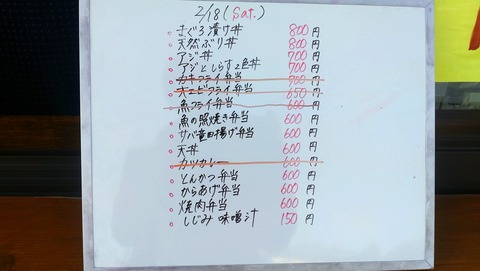 2/18(Sat.)
まぐろ漬け丼 800円
天然ぶり丼 800円
アジ丼 700円
アジとしらす2色丼 700円
カキフライ弁当 700円
大エビフライ弁当 650円
魚フライ弁当 600円
魚の照焼き弁当 600円
サバ竜田揚げ弁当 600円
天丼 600円
カツカレー 600円
とんかつ弁当 600円
からあげ弁当 600円
焼肉弁当 600円
しじみ味噌汁 150円